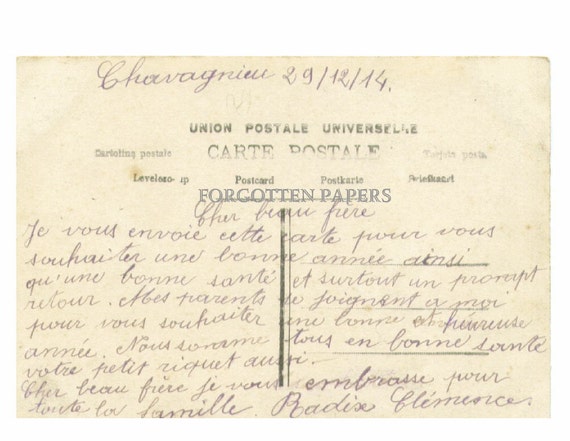 Chavagnieu 29/12/14.
UNION POSTALE UNIVERSELLE
CARTE POSTALE
Cartolina postale Tarjeta posta
Levelezo-ap Postcard Postkarte Briefkaart
FORGOTTEN PAPERS
Cher beau frère
Je vous envoie cette carte pour vous
souhaiter une bonne année ainsi
qu'une bonne santé et surtout un prompt
retour. Mes parents se joignent a moi
pour vous souhaiter une bonne et heureuse
année. Nous somme tous en bonne santé
votre petit riquet aussi.
Cher beau frère je vous embrasse pour
toute la famille. Radix Clémence.